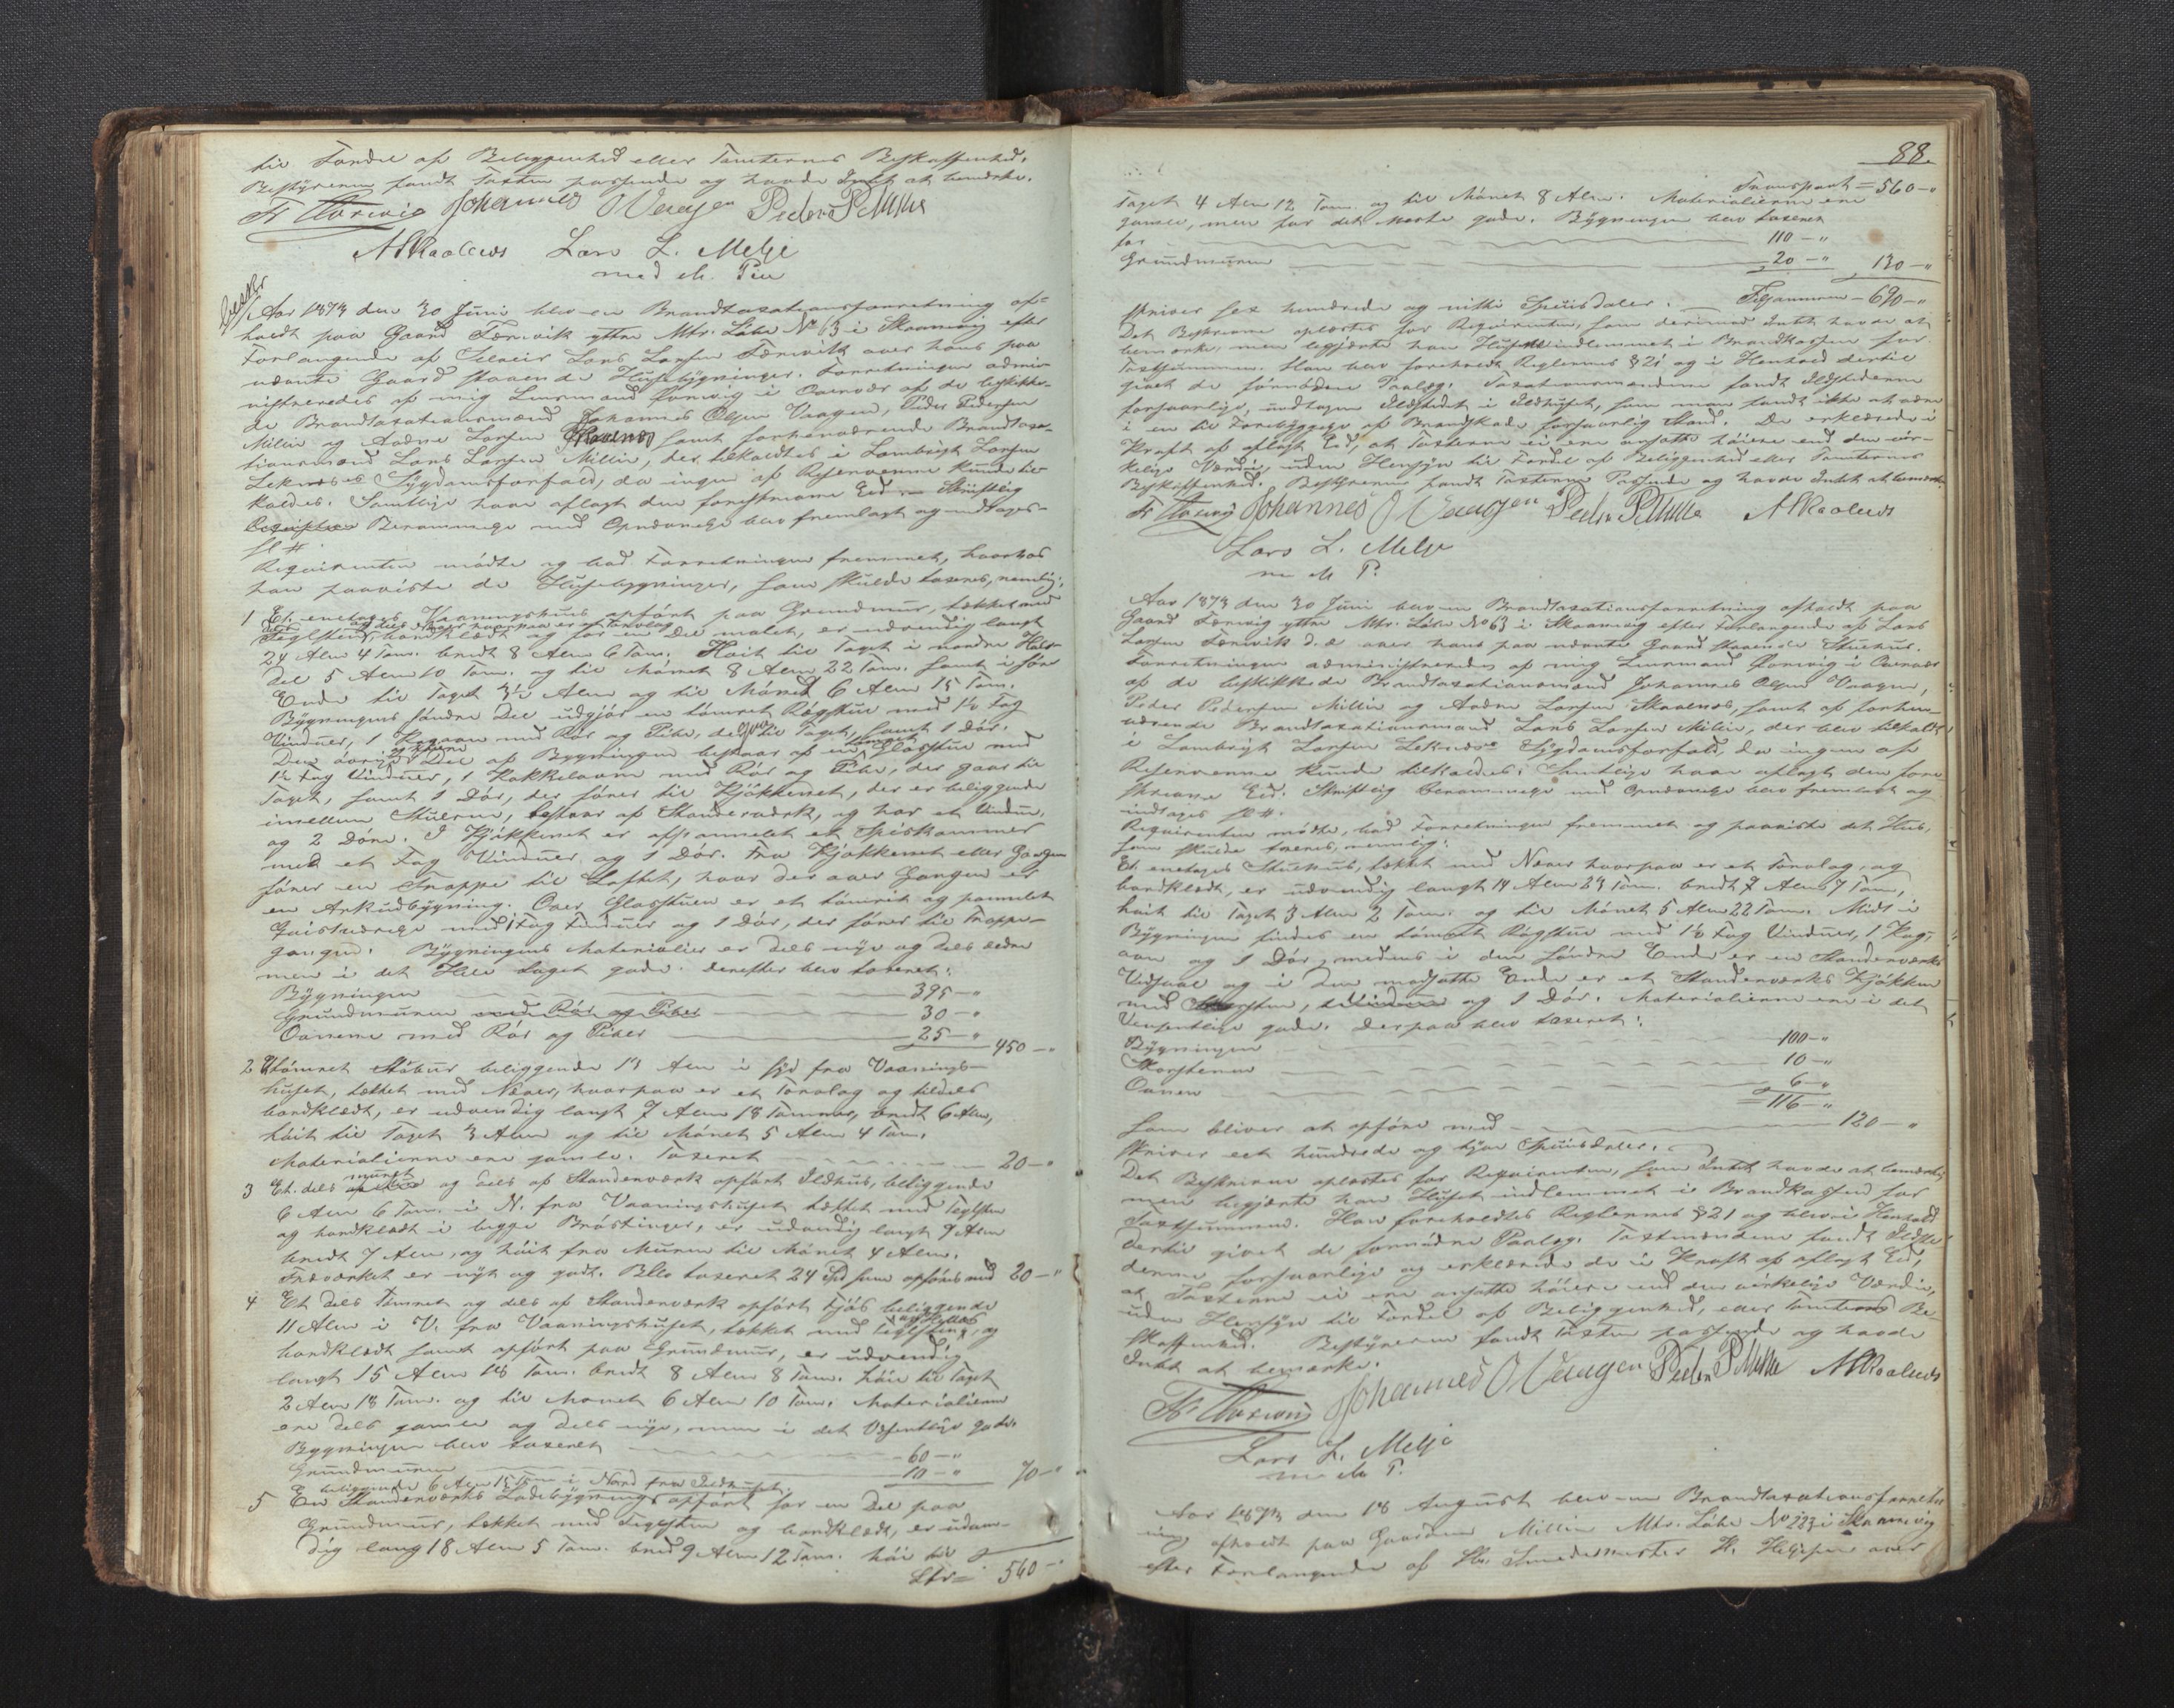 til Fordel af Beliggenhed eller Tomternes Beskaffenhed.
Bestyreren fandt Taxten passende og havde Intet at bemærke.
Johannes O Vaagen Peder P Millie
A L Skaalnes Lars L. Melje
med p. Pen
Aar 1873 den 30 Juni blev en Brandtaxationsforretning af-
holdt paa Gaard Tærevik yttre Mtr. Løbe No 63 i Skaanevig efter
Forlangende af Lars Larsen Tærevik over hans paa
nævnte Gaard staaende Husebygninger. Forretningen admi-
nistreredes af mig Lensmand i af de beskikke-
de Brandtaxationsmænd Johannes Olsen Vaagen, Peder Pedersen
Millie og Aadne Larsen Skaalnes samt forhenværende Brandtaxa-
tionsmand Lars Larsen Millie, der tilkaldtes i Lambrigt Larsen
Leknes's Sygdomsforfald, da ingen af Reserverne kunde til-
kaldes. Samtlige have aflagt den foreskrevne Eed. Skriftlig
Berammelse med Opnævnelse blev fremlagt og indtages
sl #
Requirenten mødte og bad Forretningen fremmet, hvorhos
han paaviste de Husebygninger, som skulde taxeres, nemlig:
1 Et. enetages Vaaningshus opført paa Grundmur, tækket med
Teglsteen, bordklædt og for en Del malet, er udvendig langt
24 Alen 4 Tom. bredt 8 Alen 6 Tom. Høit til Taget i nordre
Del 5 Alen 10 Tom. og til Mønet 8 Alen 22 Tom. samt i søre
Ende til Taget 3½ Alen og til Mønet 6 Alen 15 Tom.
Bygningens søndre Del udgjør en tømret Røgstue med 1½ Fag
Vinduer, 1 med Rør og Pibe, der gaar til Taget, samt 1 Dør.
Den øvrige Del af Bygningen bestaar af en Glasstue med
1½ Fag Vinduer, 1 Kakkelovn med Rør og Pibe, der gaar til
Taget, samt 1 Dør, der fører til Kjøkkenet, der er beliggende
imellem Stuerne, bestaar af Standerværk, og har et Vindue,
og 2 Døre. I Kjøkkenet er afpannelet et Spiskammer
med et Fag Vinduer og 1 Dør. Fra Kjøkkenet eller Gangen
fører en Trappe til Loftet, hvor der over Gangen er
en Arkudbygning. Over Glasstuen er et tømret og pannelet
Kvistværelse med 1 Fag Vinduer og 1 Dør, der fører til Trappe-
gangen. Bygningens Materialier er dels nye og dels ældre
men i det Hele taget gode. Derefter blev taxeret:
Bygningen 395 - "
Grundmuren med Rør og Piber 30 - "
Ovnene med Rør og Piber 25 - " 450 - "
2 Et tømret Stabur beliggende 13 Alen i Syd fra Vaanings-
huset, tækket med Næver, hvorpaa er et Torvlag og tildels
bordklædt, er udvendig langt 7 Alen 18 Tommer, bredt 6 Alen,
høit til Taget 3 Alen og til Mønet 5 Alen 4 Tom.
Materialierne ere gamle. Taxeret 20 - "
3 Et. dels muret og dels af Standerværk opført Ildhus, beliggende
6 Alen 6 Tom. i N. fra Vaaningshuset tækket med Teglsten
og bordklædt i begge Brøstinger, er udvendig langt 9 Alen
bredt 7 Alen, og høit fra Muren til Mønet 4 Alen.
Træværket er nyt og godt. Blev taxeret 24 Spd som opføres med 20 - "
4 Et dels tømret og dels af Standerværk opført Fjøs beliggende
11 Alen i V. fra Vaaningshuset, tækket med Teglsten, og
bordklædt samt opført paa Grundmur, er udvendig
langt 15 Alen 18 Tom. bredt 8 Alen 8 Tom. høit til Taget
2 Alen 18 Tom. og til Mønet 6 Alen 10 Tom. Materialierne
ere dels gamle og dels nye, men i det Væsentlige gode.
Bygningen blev taxeret 60 - "
Grundmuren 10 - " 70 - "
beliggende 6 Alen 15 Tom i Nord fra Ildhuset
5 En Standerværks Ladebygning opført for en Del paa
Grundmur, tækket med Teglsten og bordklædt, er udven-
dig lang 18 Alen 5 Tom. bred 9 Alen 12 Tom. høi til
Ltr = 560 - "
88.
Transport = 560 - "
Taget 4 Alen 12 Tom. og til Mønet 8 Alen. Materialierne ere
gamle, men for det meste gode. Bygningen blev taxeret
for 110 - "
Grundmuren 20 - " 130 - "
Tilsammen - 690 - "
skriver sex hundrede og nitti Speciesdaler.
Det Beskrevne oplæstes for Requirenten, som derimod Intet havde at
bemærke; men begjærte han Husene indlemmet i Brandkassen for
Taxtsummen. Han blev foreholdt Reglernes § 21 og i Henhold dertil
givet de fornødne Paalæg. Taxationsmændene fandt Ildstederne
forsvarlige, undtagen Ildstedet i Ildhuset, som man fandt ikke at være
i en til Forebyggelse af Brandskade forsvarlig Stand. De erklærede i
Kraft af aflagt Eed, at Taxterne ei ere ansatte høiere end den vir-
kelige Værdi, uden Hensyn til Fordel af Beliggenhed eller Tomternes
Beskaffenhed. Bestyreren fandt Taxterne Passende og havde Intet at bemærke.
Johannes O Vaagen Peder P Millie A L Skaalnes
Lars L. Melje
m. p. P.
Aar 1873 den 30 Juni blev en Brandtaxationsforretning afholdt paa
Gaard Tærevig yttre Mtr. Løbe No 63 i Skaanevig efter Forlangende af Lars
Larsen Tærevik d.æ over hans paa nævnte Gaard staaende Stuehus.
Forretningen administreredes af mig Lensmand i
af de beskikkede Brandtaxationsmænd Johannes Olsen Vaagen,
Peder Pedersen Millie og Aadne Larsen Skaalnes, samt af forhen-
værende Brandtaxationsmand Lars Larsen Milie, der blev tilkaldt
i Lambrigt Larsen Leknes's Sygdomsforfald, da ingen af
Reserverne kunde tilkaldes. Samtlige have aflagt den fore-
skrevne Eed. Skriftlig Berammelse med Opnævnelse blev fremlagt og
indtages sl #.
Requirenten mødte, bad Forretningen fremmet og paaviste det Hus,
som skulde taxeres, nemlig:
Et. enetages Stuehus, tækket med Næver hvorpaa er et Torvlag, og
bordklædt, er udvendig langt 14 Alen 23 Tom. bredt 7 Alen 7 Tom,
høit til Taget 3 Alen 2 Tom. og til Mønet 5 Alen 22 Tom. Midt i
Bygningen findes en tømret Røgstue med 1½ Fag Vinduer, 1
ovn og 1 Dør, medens i den søndre Ende er en Standerværks
Vedskaal og i den modsatte Ende er et Standerværks Kjøkken
med Skorsten, og 1 Dør. Materialierne ere i det
Væsentlige gode. Derpaa blev taxeret:
Bygningen 100 - "
Skorstenen 10 - "
Ovnen 6 - "
= 116 - "
Som bliver at opføre med 120 - "
skriver eet hundrede og tyve Speciesdaler.
Det Beskrevne oplæstes for Requirenten, som Intet havde at bemærke,
men begjærte han Huset indlemmet i Brandkassen for
Taxtsummen. Han foreholdtes Reglernes § 21 og blev i Henhold
dertil givet de fornødne Paalæg. Taxtmændene fandt Ildste-
derne forsvarlige og erklærede de i Kraft af aflagt Eed,
at Taxterne ei ere ansatte høiere end den virkelige Værdi,
uden Hensyn til Fordel af Beliggenhed, eller Tomternes Be-
skaffenhed. Bestyreren fandt Taxten passende og havde
Intet at bemærke.
Johannes O Vaagen Peder P Millie A L Skaalnes
Lars L. Melje
m. p. P.
Aar 1873 den 18 August blev en Brandtaxationsforret-
ning afholdt paa Gaarden Millie Mtr. Løbe No 223 i Skaanevig
efter Forlangende af Hr. Smedemester H. Helgesen over